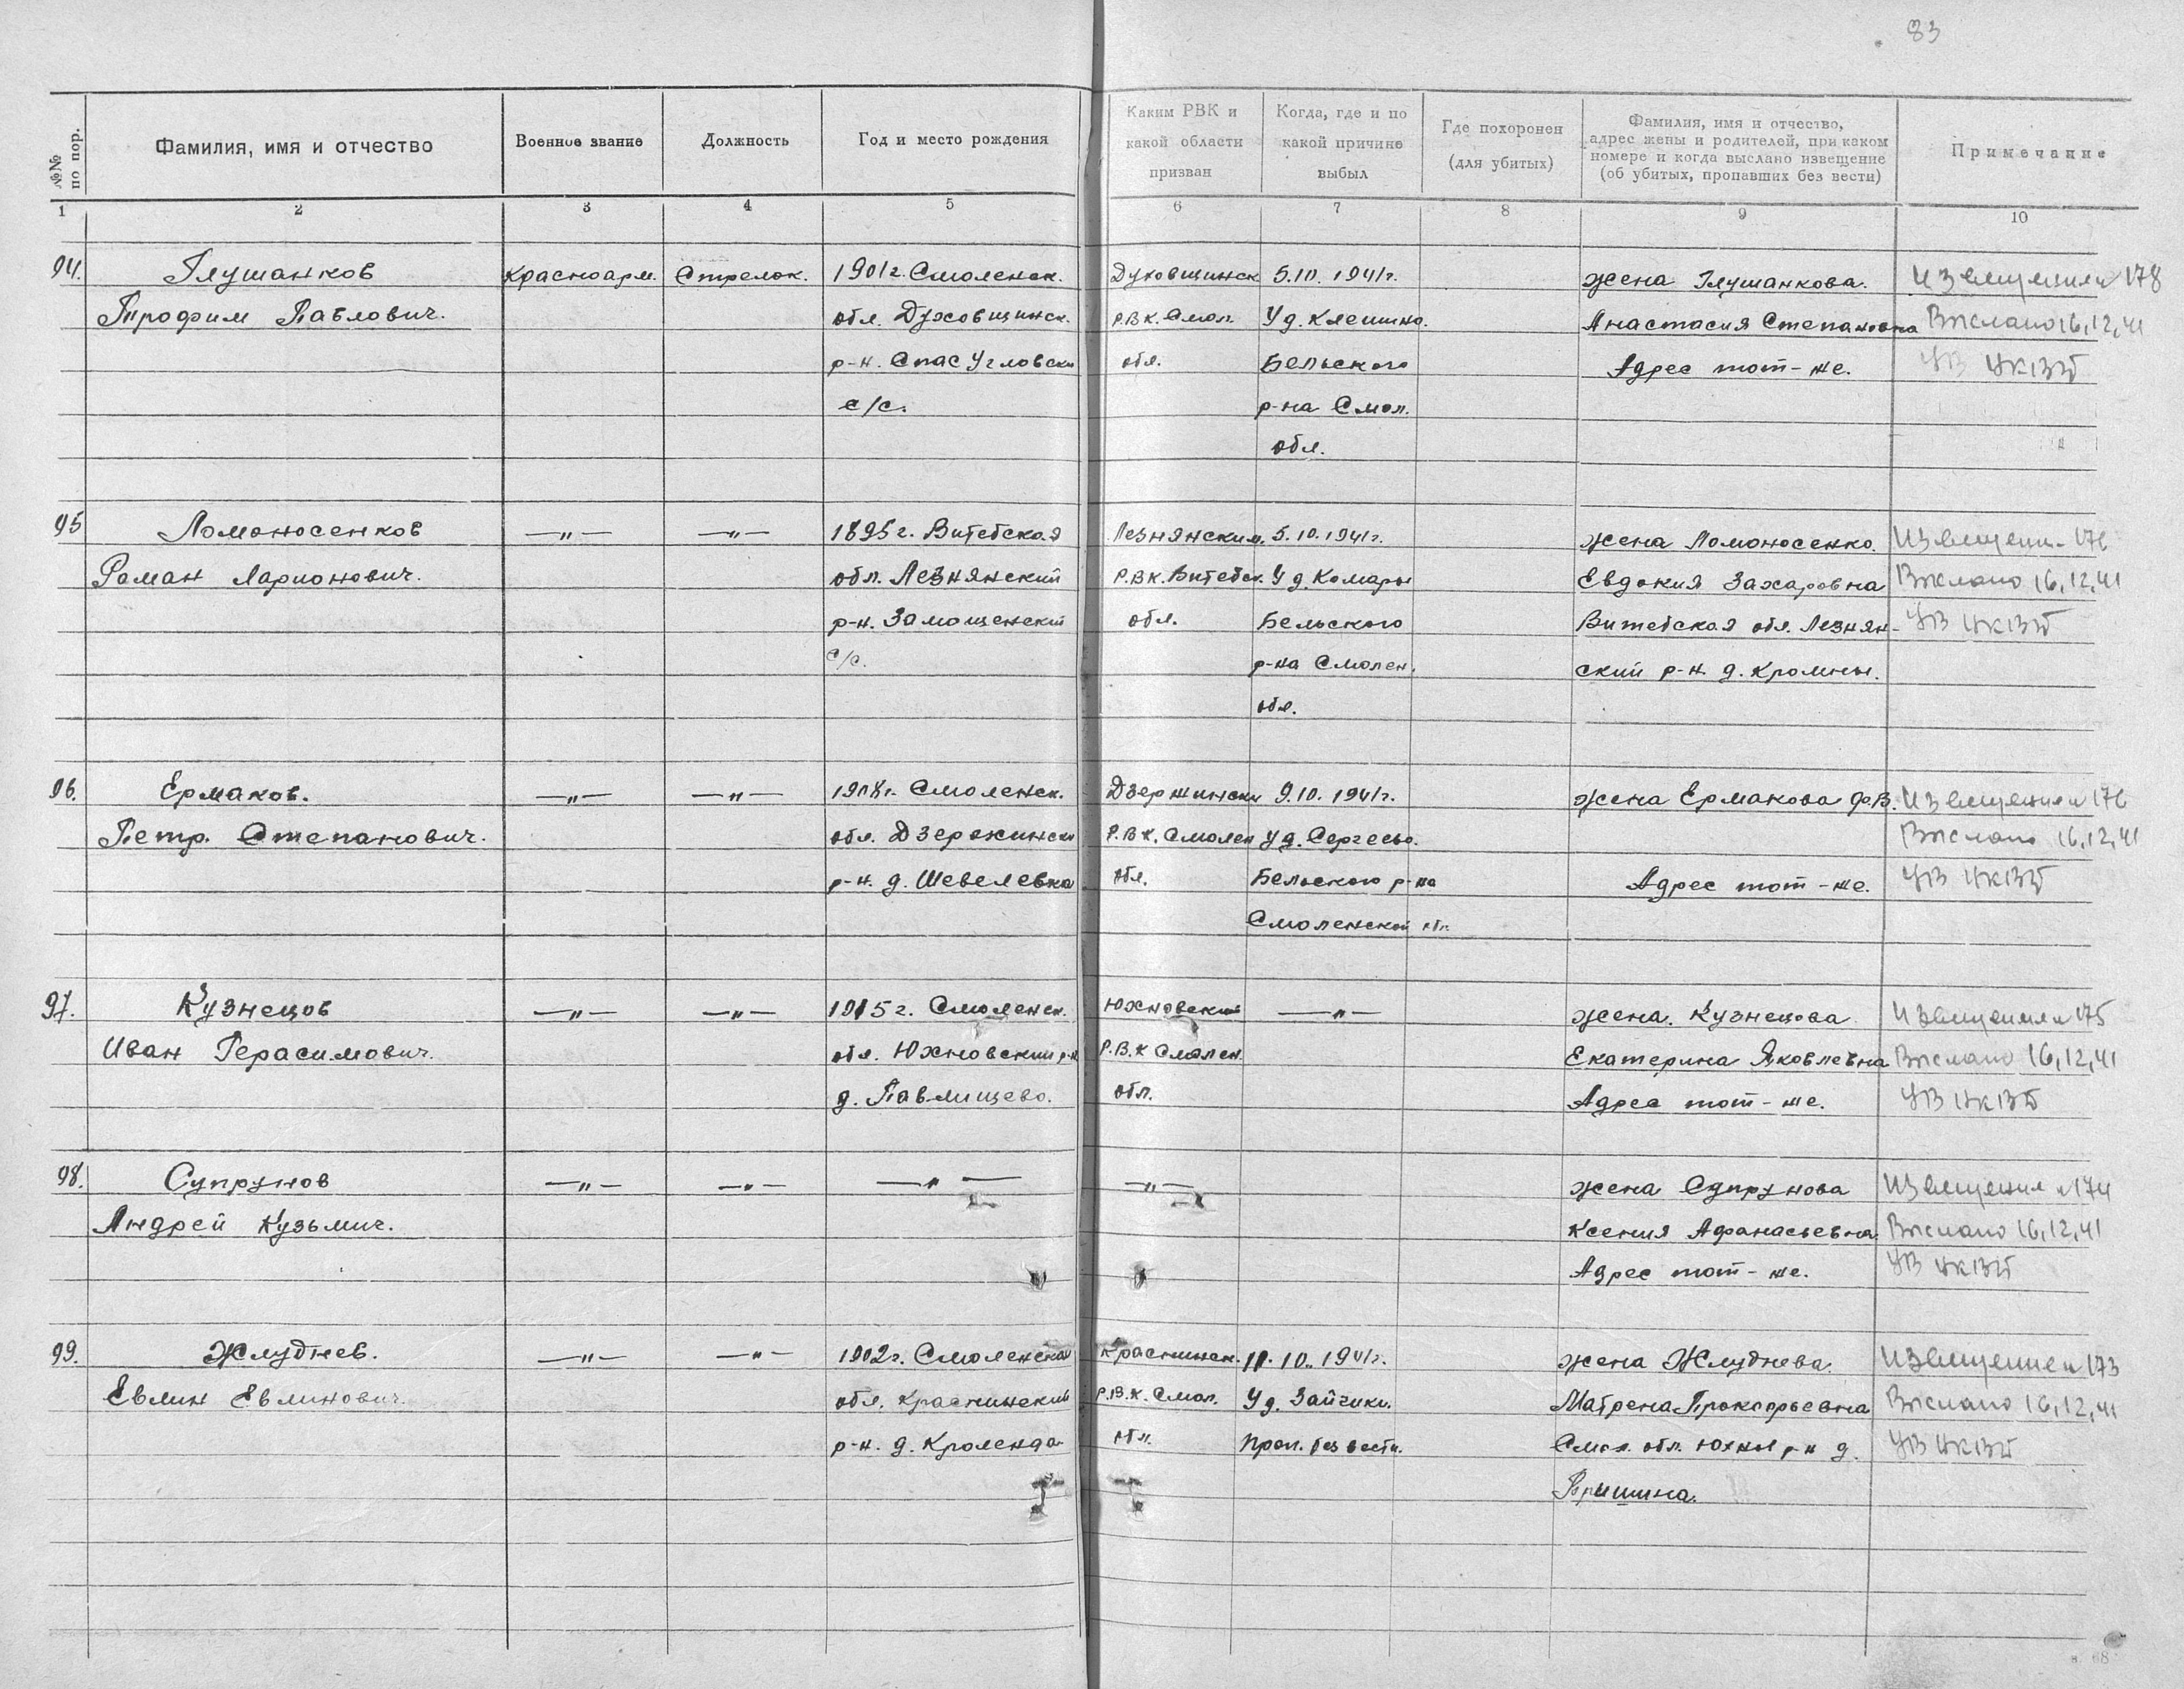 83
№№ по пор.
Фамилия, имя и отчество
Военное звание
Должность
Год и место рождения
Каким РВК и какой области призван
Когда, где и по какой причине выбыл
Где похоронен (для убитых)
Фамилия, имя и отчество, адрес жены и родителей, при каком номере и когда выслано извещение (об убитых, пропавших без вести)
Примечание
1 2 3 4 5 6 7 8 9 10
94. Глушанков Красноарм. Стрелок. 1901г. Смоленск. Духовщинск 5.10.1941г. жена Глушанкова. Извещение 178
Трофим Павлович. обл. Духовщинск. Р.В.К. Смол. У д. Клешно. Анастасия Степановна Выслано 16,12,41
р-н. Спас Угловски обл. Бельского Адрес тот-же.
с/с. р-на Смол.
обл.
95 Ломоносенков —„— —„— 1895г. Витебская Лезнянским. 5.10.1941г. жена Ломоносенко.
Роман Ларионович. обл. Лезнянский Р.В.К. Витебск. У д. Комары Евдокия Захаровна Выслано 16,12,41
р-н. Замощенский обл. Бельского Витебская обл. Лезнян-
с/с. р-на Смолен. ский р-н. д. Кромны.
обл.
96. Ермаков. —„— —„— 1908г. Смоленск. Дзержински 9.10.1941г. жена Ермакова Ф.В. Извещение 176
Петр. Степанович. обл. Дзержински Р.В.К. Смолен У д. Сергеево. Выслано 16,12,41
р-н. д. Шевелевка обл. Бельского р-на Адрес тот-же.
Смоленской обл.
97. Кузнецов —„— —„— 1915г. Смоленск. Юхновский —„— жена. Кузнецова Извещение 175
Иван Герасимович. обл. Юхновский р-н Р.В.К Смолен. Екатерина Яковлевна Выслано 16,12,41
д. Павлищево. обл. Адрес тот-же.
98. Супрунов —„— —„— —„— —„— жена Супрунова Извещение 174
Андрей Кузьмич. Ксения Афанасьевна. Выслано 16,12,41
Адрес тот-же.
99. Жлуднев. —„— —„— 1902г. Смоленская Краснинск. 11.10.1941г. жена Жлуднева. Извещение 173
Евлин Евлинович. обл. Краснинский Р.В.К. Смол. У д. Зайчики. Матрена Прокофьевна Выслано 16,12,41
р-н. д. Кроленда обл. Проп. без вести. Смол. обл. Юхнов р-н д.
Тришина.